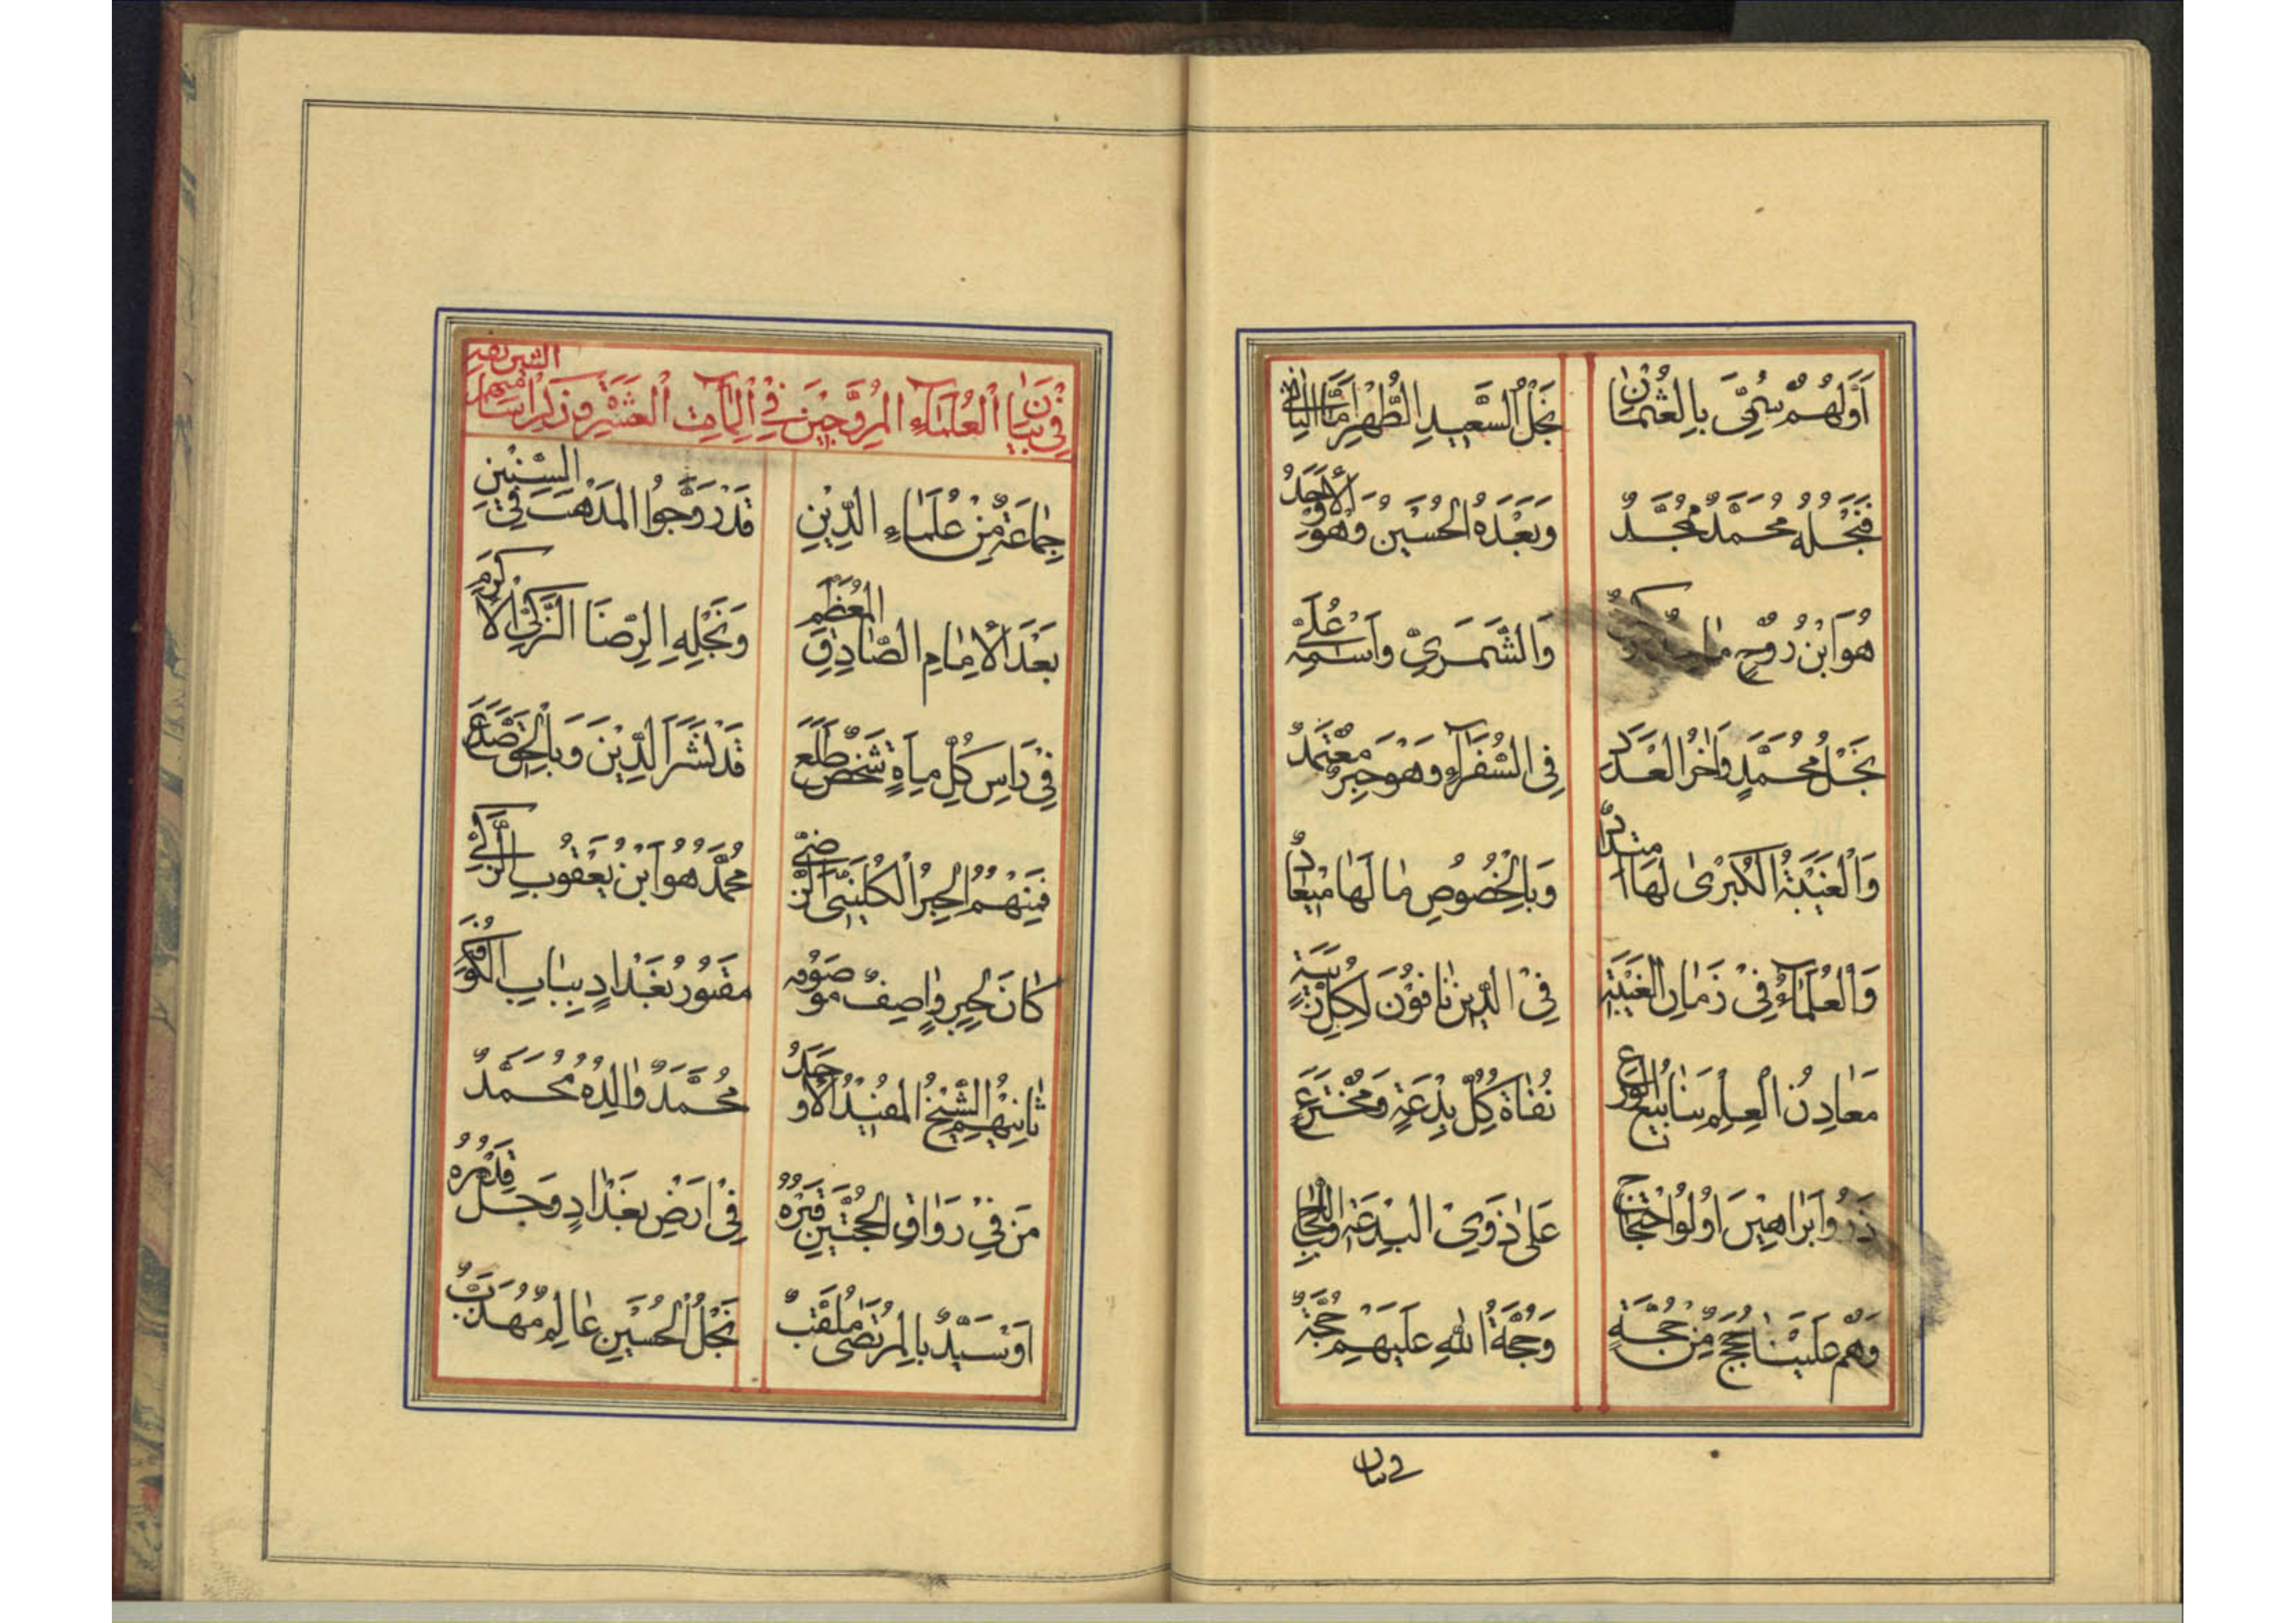 أَوَّلُهُمْ سُمِّيَ بِالْعُثْمَانِ نَجْلُ السَّعِيدِ الطُّهْرِ
فَنَجْلُهُ مُحَمَّدٌ مُمَجَّدٌ وَبَعْدَهُ الْحُسَيْنُ وَهُوَ الْأَوْجَدُ
هُوَ ابْنُ رُوْحٍ وَالسَّمَرِيُّ وَاسْمُهُ عَلِيٌّ
نَجْلُ مُحَمَّدٍ وَاٰخِرُ الْعَدَدِ فِي السُّفَرَآءِ وَهْوَ حِبْرٌ مُعْتَمَدُ
وَالْغَيْبَةُ الْكُبْرىٰ لَهَا وَبِالْخُصُوصِ مٰا لَهٰا
وَالْعُلَمَآءُ فِيْ زَمٰانِ الْغَيْبَةِ فِي الدِّينِ نَافُوْنَ لِكُلِّ رَيْبَةٍ
مَعَادِنُ الْعِلْمِ يَنَابِيعُ الْوَرَعِ نُفٰاةُ كُلِّ بِدْعَةٍ وَمُخْتَرَعٍ
ذَوُوا بَرَاهِينَ اُولُوا احْتِجَاجِ عَلىٰ ذَوِيْ الْبِدْعَةِ وَاللَّجَاجِ
وَهُمْ عَلَيْنَا حُجَجٌ مِنْ حُجَّةٍ وَحُجَّةُ اللهِ عَلَيْهِمْ حُجَّةٌ
في بيان
فِي بَيَانِ الْعُلَمَآءِ الْمُرَوِّجِينَ فِي الْمِآتِ الْعَشْرِ وَذِكْرِ
جَمَاعَةٌ مِنْ عُلَمَاءِ الدِّيْنِ قَدْ رَوَّجُوا الْمَذْهَبَ فِي السِّنِيْنِ
بَعْدَ الْأِمٰامِ الصّٰادِقِ الْمُعَظَّمِ وَنَجْلِهِ الرِّضَا الزَّكِيِّ الْأَكْرَمِ
فِيْ رَاسِ كُلِّ مِاَةٍ شَخْصٌ طَلَعَ قَدْ نَشَرَ الدِّيْنَ وَبِالْحَقِّ صَدَعَ
فَمِنْهُمُ الْحِبْرُ الْكُلَيْنِيُّ الرَّضِيْ مُحَمَّدٌ هُوَ ابْنُ يَعْقُوبِ الزَّكِيْ
كٰانَ لِحِبْرٍ وٰاصِفٌ مَوْصُوفُهُ مَقْبُورُ بَغْدٰادٍ بِبٰابِ الْكُوْفَةِ
ثٰانِيْهِمُ الشَّيْخُ الْمُفِيْدُ الْأَوْحَدُ مُحَمَّدٌ وٰالِدُهُ مُحَمَّدٌ
مَنْ فِيْ رَوَاقِ الْحُجَّتَيْنِ قَبْرُهُ فِيْ اَرْضِ بَغْدٰادٍ وَجَلَّ قَدْرُهُ
اَوْ سَيِّدٌ بِالْمُرْتَضىٰ مُلَقَّبٌ نَجْلُ الْحُسَيْنِ عٰالِمٌ مُهَذَّبٌ